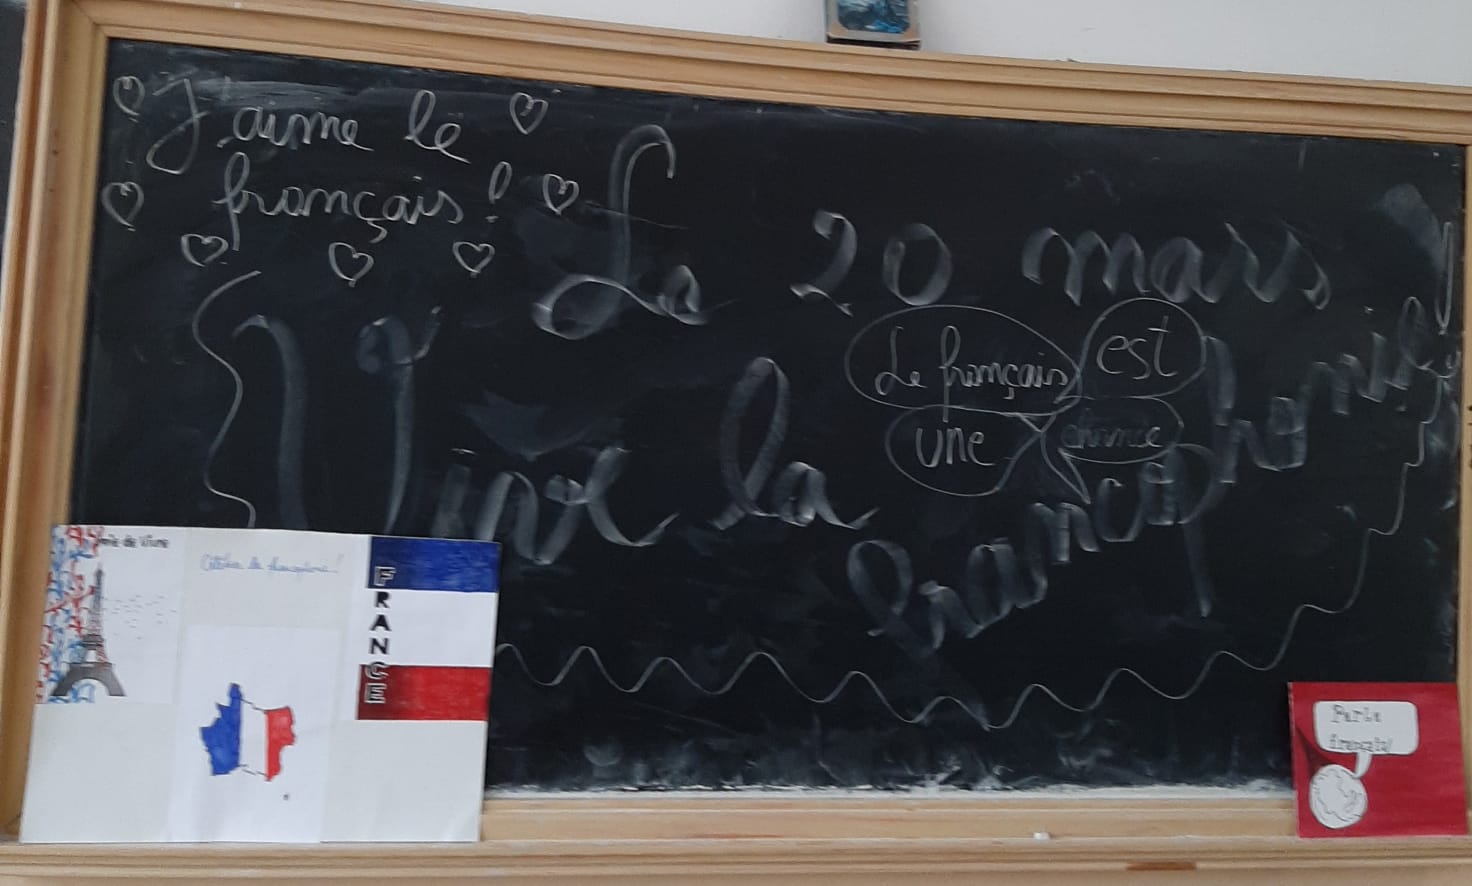 J'aime le
français!
Le 20 mars
Vive la
francophonie!
Le français est
une chance
Joie de Vivre
FRANCE
Parle
français!